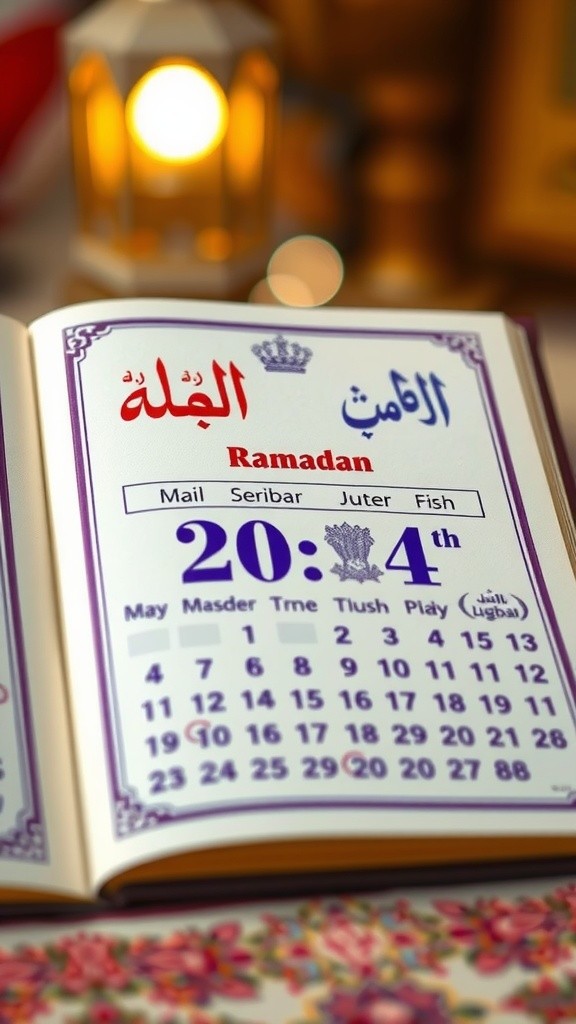 Ramadan
Mail Seribar Juter Fish
20: 4th
May Masder Trne Tlush Play
1 2 3 4 15 13
4 7 6 8 9 10 11 11 12
11 12 14 15 16 17 18 19 11
19 10 16 17 18 29 20 21 28
23 24 25 29 20 20 27 88